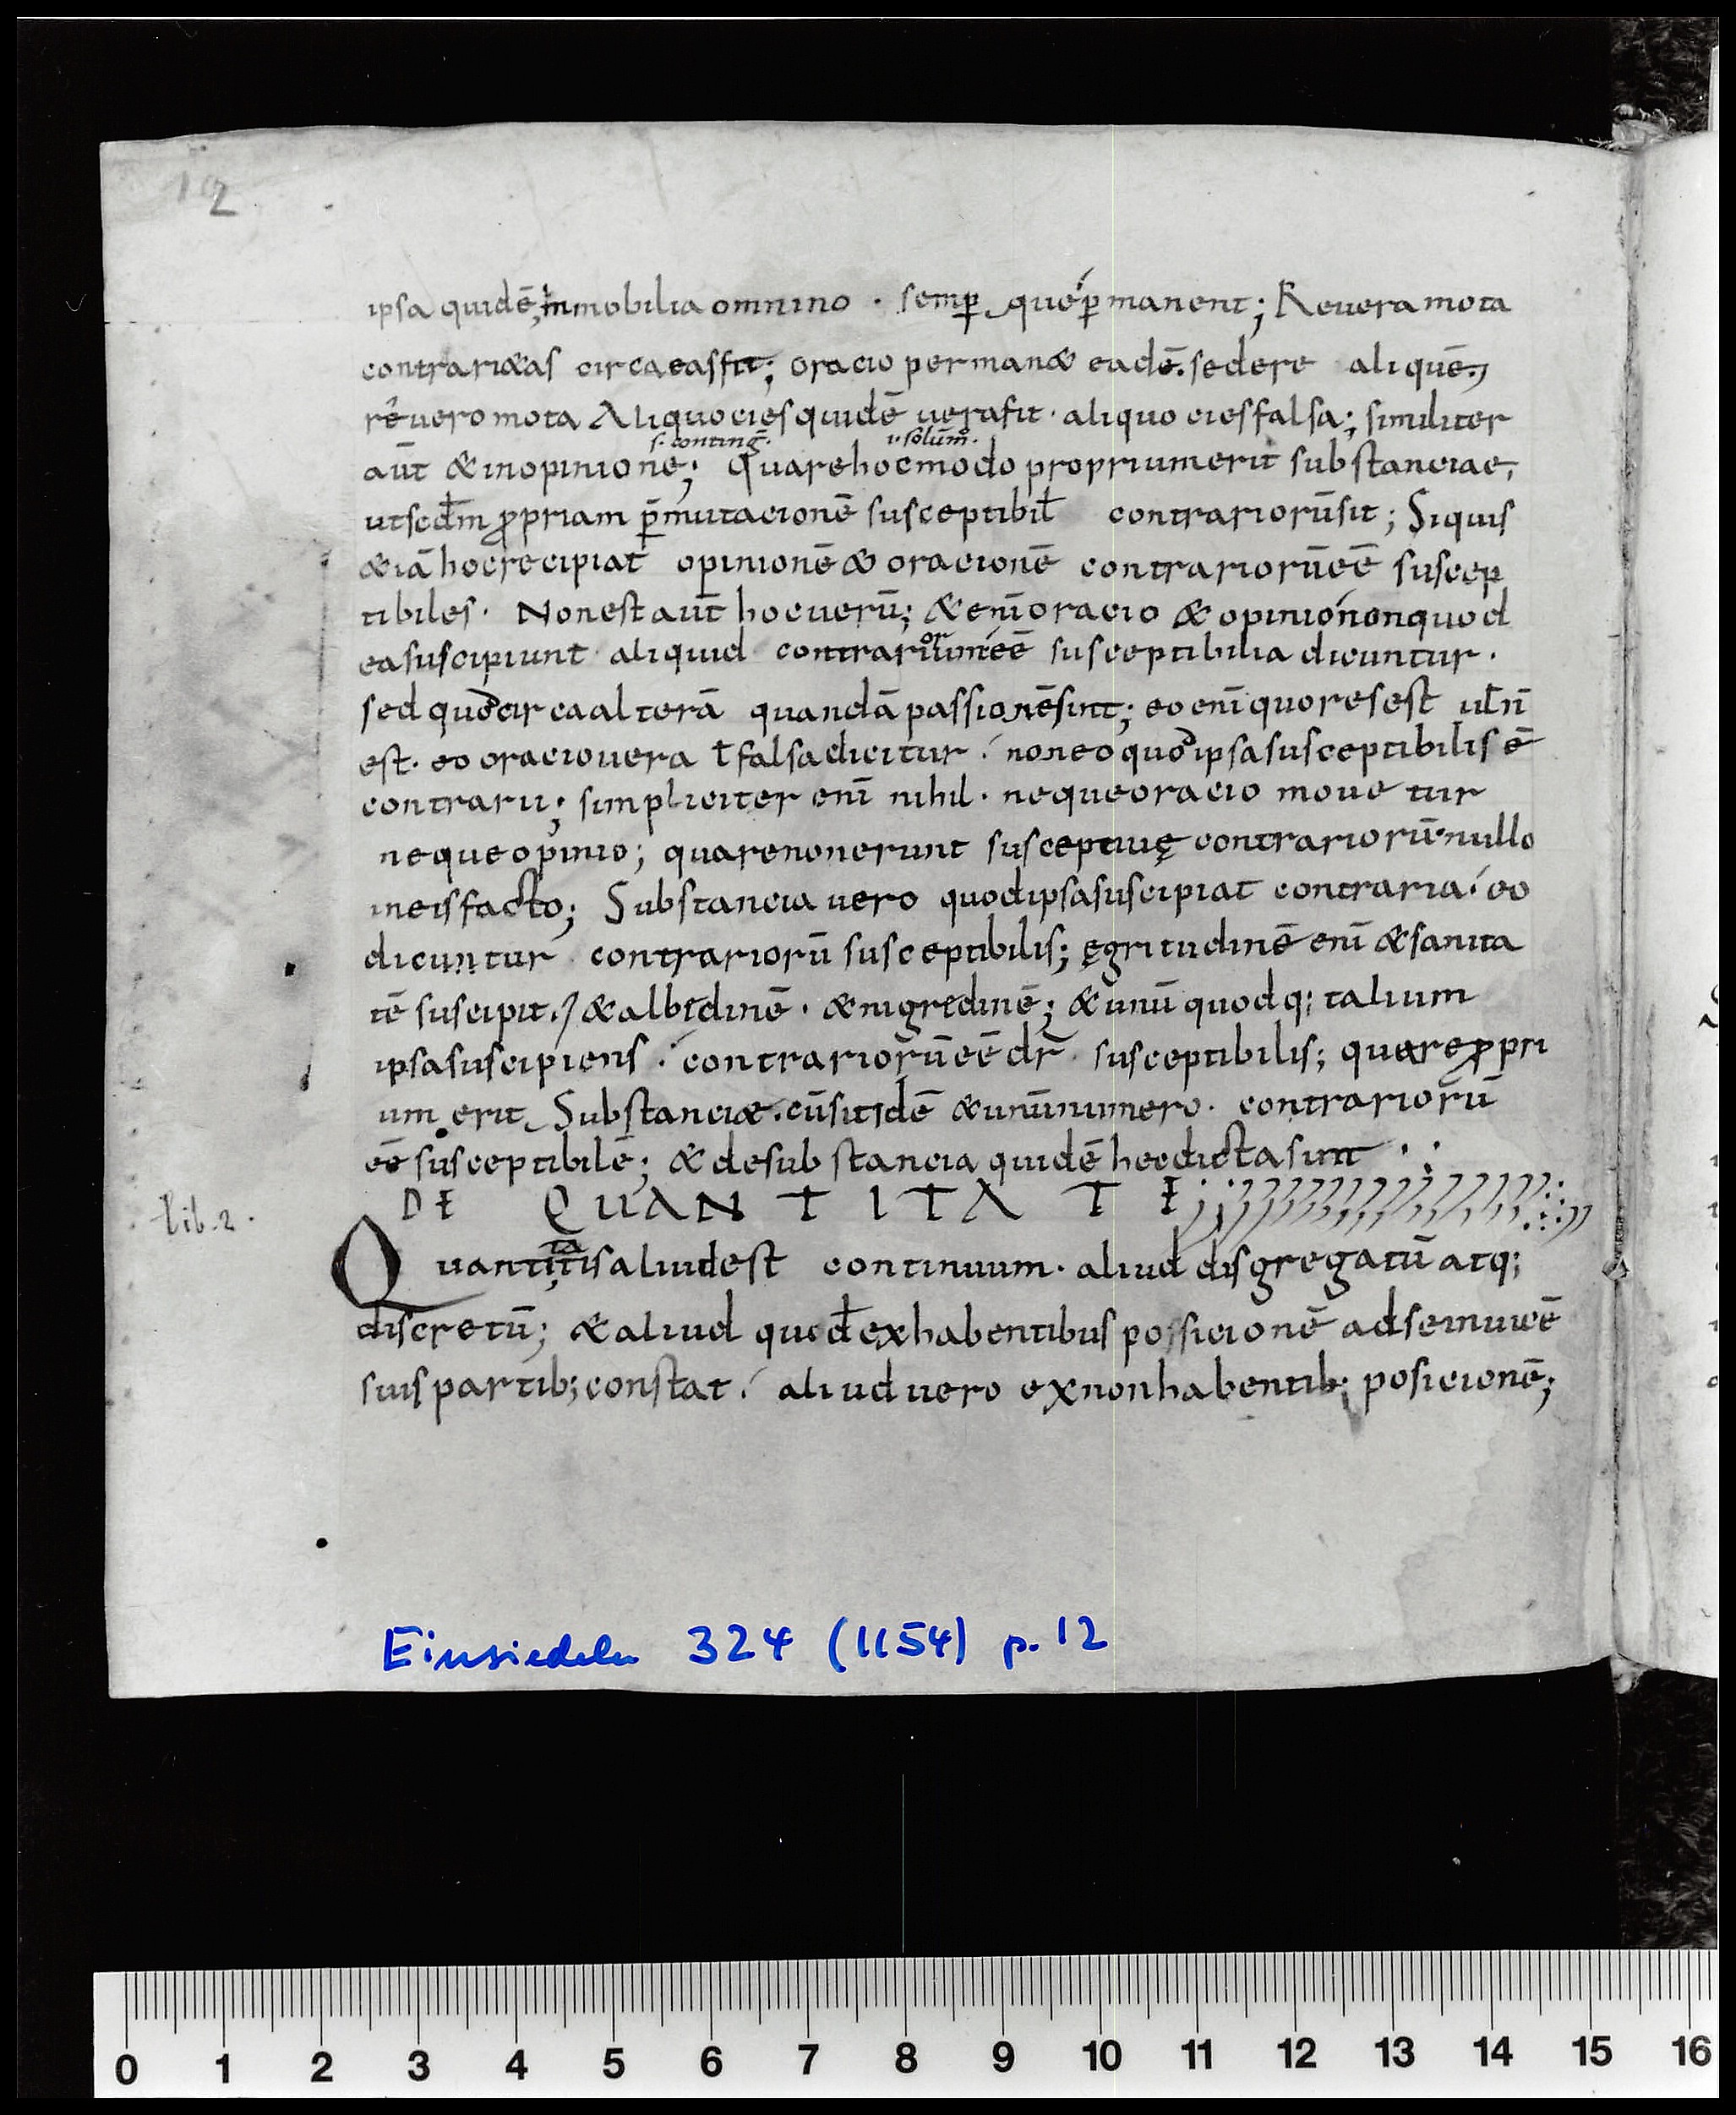 12
ipsa quidē; inmobilia omnino . semꝑ que ꝑmanent; Re uera mota
contrari&as circa eas fit; oracio perman& eadē. sedere aliquē.,
rē uero mota Aliquocies quidē uera fit . aliquocies falsa; similiter
s. conting̅. v solūm.
aūt & in opinione; Quare hoc modo proprium erit substanciae,
ut scd̄m ꝓpriam p̄mutacionē susceptibil̄ contrariorū sit; Si quis
&iā hoc recipiat opinionē & oracionē contrariorū eē suscep
tibiles . Non est aūt hoc uerū; &enī oracio & opinio non quod
or
ea suscipiunt aliquid contrarium eē susceptibilia dicuntur .
sed quod circa alterā quandā passionē sint; eo enī quo res est ul̄ n̄
est . eo oracio uera ł falsa dicitur . non eo quod ipsa susceptibilis ē
contrarii; simpliciter enī nihil . neque oracio mouetur
neque opinio; quare non erunt susceptiuę contrariorū nullo
in eis facto; Substancia uero quod ipsa suscipiat contraria . eo
dicuntur contrariorū susceptibilis; ęgritudinē enī & sanita
tē suscipit ./ & albedinē . & nigredinē; & unū quodq; talium
ipsa suscipiens . contrariorū eē dr̄ susceptibilis; quare ꝓpri
um erit Substanciæ . cū sit idē & unū numero . contrariorū
eē susceptibilē; & de substancia quidē hec dicta sunt . :
DE QUANTITATE
lib. 2.
ta
Quantitis aliud est continuum . aliud disgregatū atq;
discretū; & aliud quod ex habentibus possicionē ad se inuicē
suis partib; constat . aliud uero ex non habentib; posicionē;
Einsiedeln 324 (1154) p. 12
0 1 2 3 4 5 6 7 8 9 10 11 12 13 14 15 16